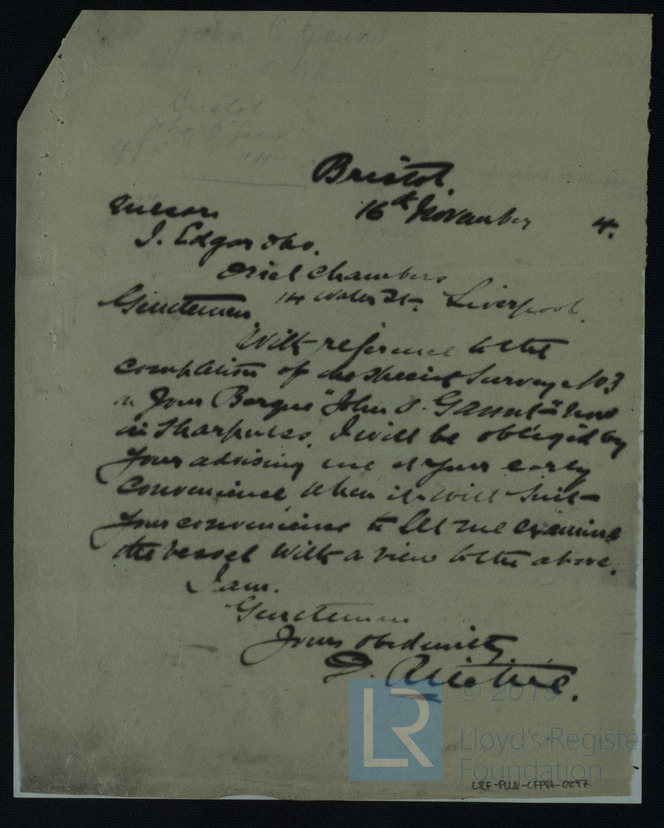 Bristol.
16th November 4.
Messrs
J. Edgar & Co.
Oriel Chambers
14 Water St. Liverpool.
Gentlemen
With reference to the
completion of the Special Survey No 3
on your Barque "John O. Gaunt" now
in Sharpness. I will be obliged by
your advising me at your early
convenience when it will suit
your convenience to let me examine
the vessel with a view to the above.
I am.
Gentlemen
Yours obediently
LR
© 2019
Lloyd's Registe
Foundation
LRF-PUN-CFP94-0297